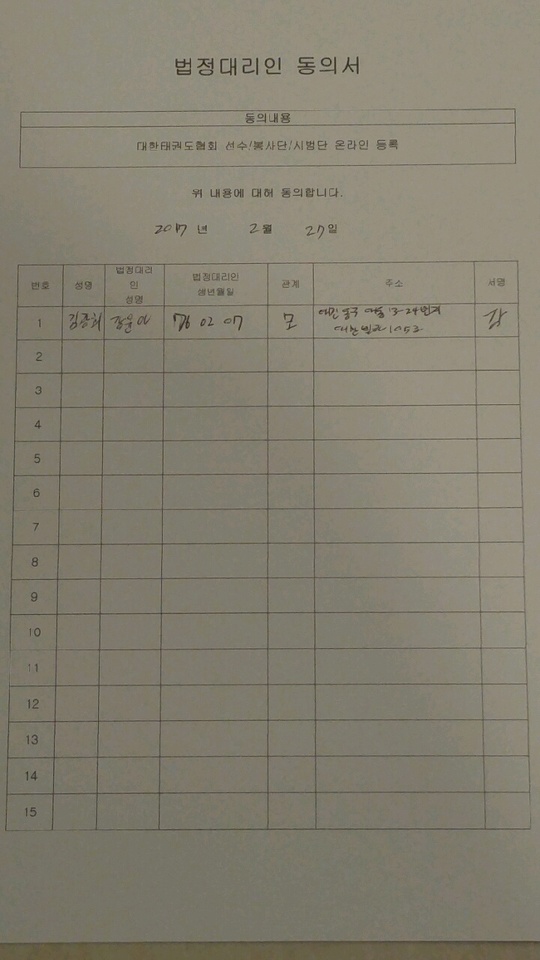 법정대리인 동의서
동의내용
대한태권도협회 선수/봉사단/시범단 온라인 등록
위 내용에 대혀 동의합니다.
2017 년 2월 27일
번호 성명 법정대리인 성명 법정대리인 생년월일 관계 주소 서명
1 76 02 07 모
2
3
4
5
6
7
8
9
10
11
12
13
14
15